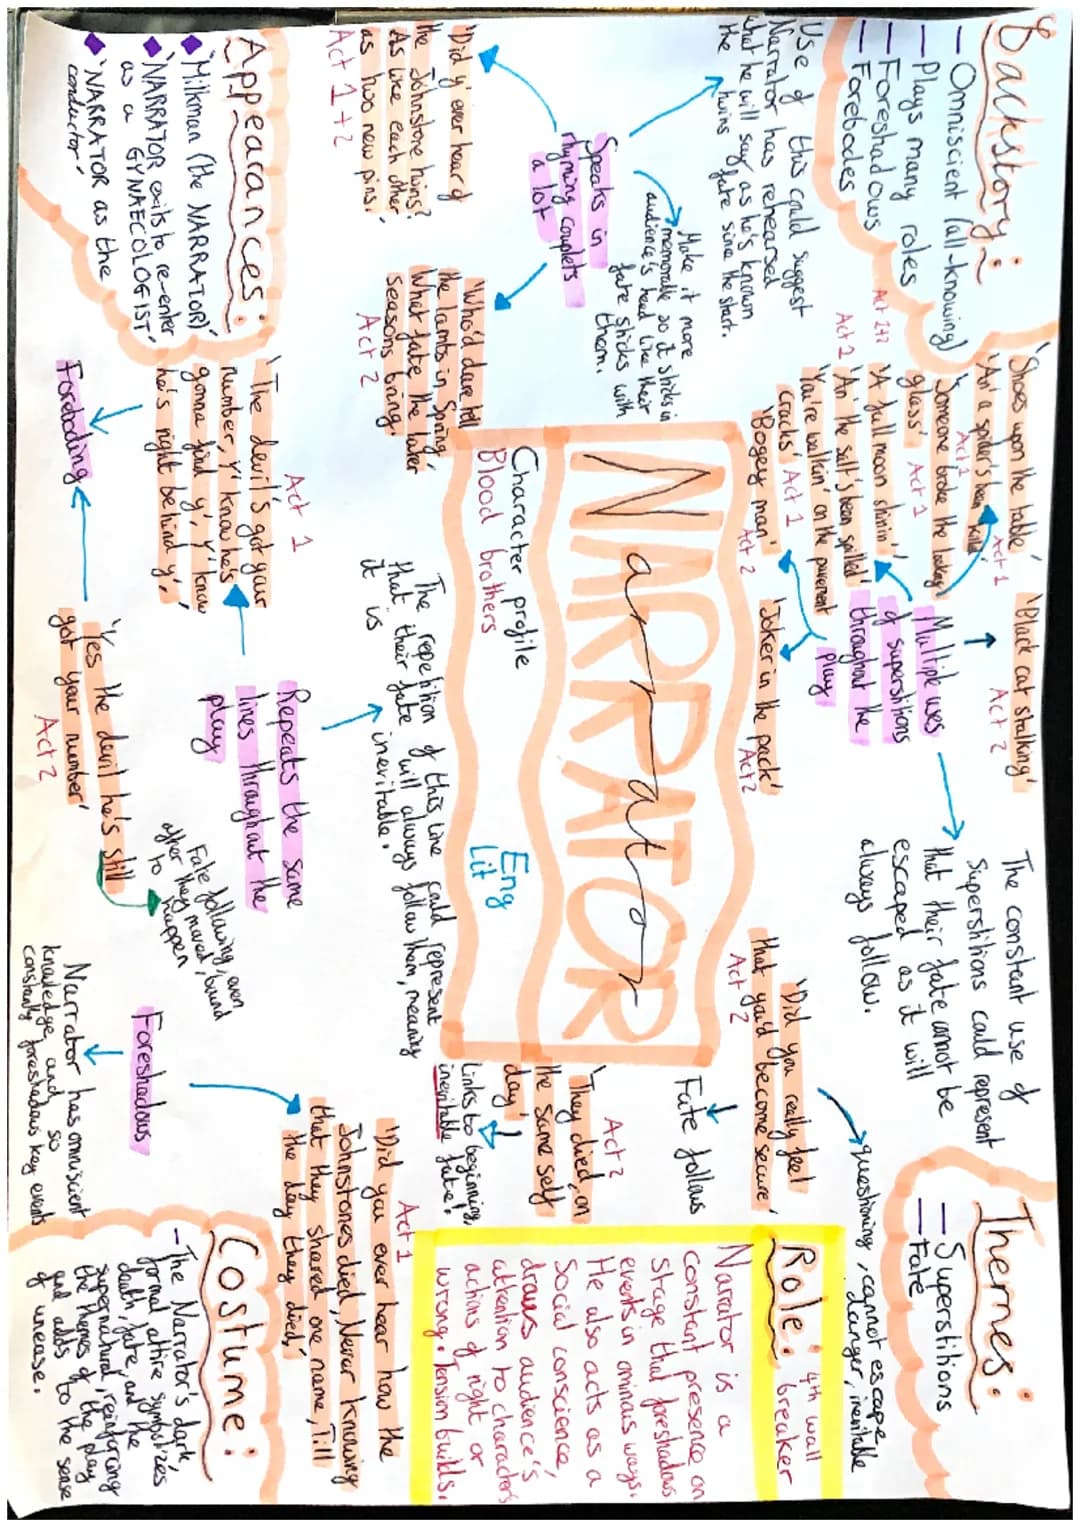 Backstory:
– Omniscient (all-knowing)
– Plays many roles
– Foreshadows
– Forebodes
'Shoes upon the table'
Act 1
'An' a spider's been killed'
Act 1
'Someone broke the lookin'
glass' Act 1
Act 1+2
'A full moon shinin''
Act 1
'An' the salt's been spilled'
'You're walkin' on the pavement
cracks' Act 1
'Bogey man'
Act 2
'Joker in the pack'
Act 2
'Black cat stalking'
Act 2
Multiple uses
of superstitions
throughout the
play
The constant use of
superstitions could represent
that their fate cannot be
escaped as it will
always follow.
Themes:
– Superstitions
– Fate
Use of this could suggest
Narrator has rehearsed
what he will say as he's known
the twins fate since the start.
Make it more
memorable so it sticks in
audience's head like their
fate sticks with
them.
Speaks in
rhyming couplets
a lot
'Did y' ever hear of
the Johnstone twins?
As like each other
as two new pins.'
Act 1+2
'Who'd dare tell
the lambs in Spring,
What fate the later
seasons bring.'
Act 2
NARRATOR
Narrator
Character profile
Blood brothers
Eng
Lit
'Did you really feel
that you'd become secure'
Act 2
questioning, cannot escape
danger, inevitable
Fate follows
Act 2
'They died, on
the same self
day'
Links to beginning,
inevitable fate!
Role: 4th wall
breaker
Narrator is a
constant presence on
stage that foreshadows
events in ominous ways.
He also acts as a
social conscience,
draws audience's
attention to characters
actions of right or
wrong. Tension builds.
Appearances:
◆ 'Milkman (the NARRATOR)'
◆ 'NARRATOR exits to re-enter
as a GYNAECOLOGIST'
◆ 'NARRATOR as the
conductor'
Act 1
'The devil's got your
number, Y' know he's
gonna find y', Y' know
he's right behind y''
Foreboding
'Yes the devil he's still
got your number'
Act 2
Repeats the same
lines throughout the
play
The repetition of this line could represent
that their fate will always follow them, meaning
it is inevitable.
Fate following, even
after they moved, bound
to happen
Foreshadows
Narrator has omniscient
knowledge and so
constantly foreshadows key events
Act 1
'Did you ever hear how the
Johnstones died, Never knowing
that they shared one name, Till
the day they died'
Costume:
– The Narrator's dark,
formal attire symbolizes
death, fate, and the
supernatural, reinforcing
the themes of the play
and adds to the sense
of unease.